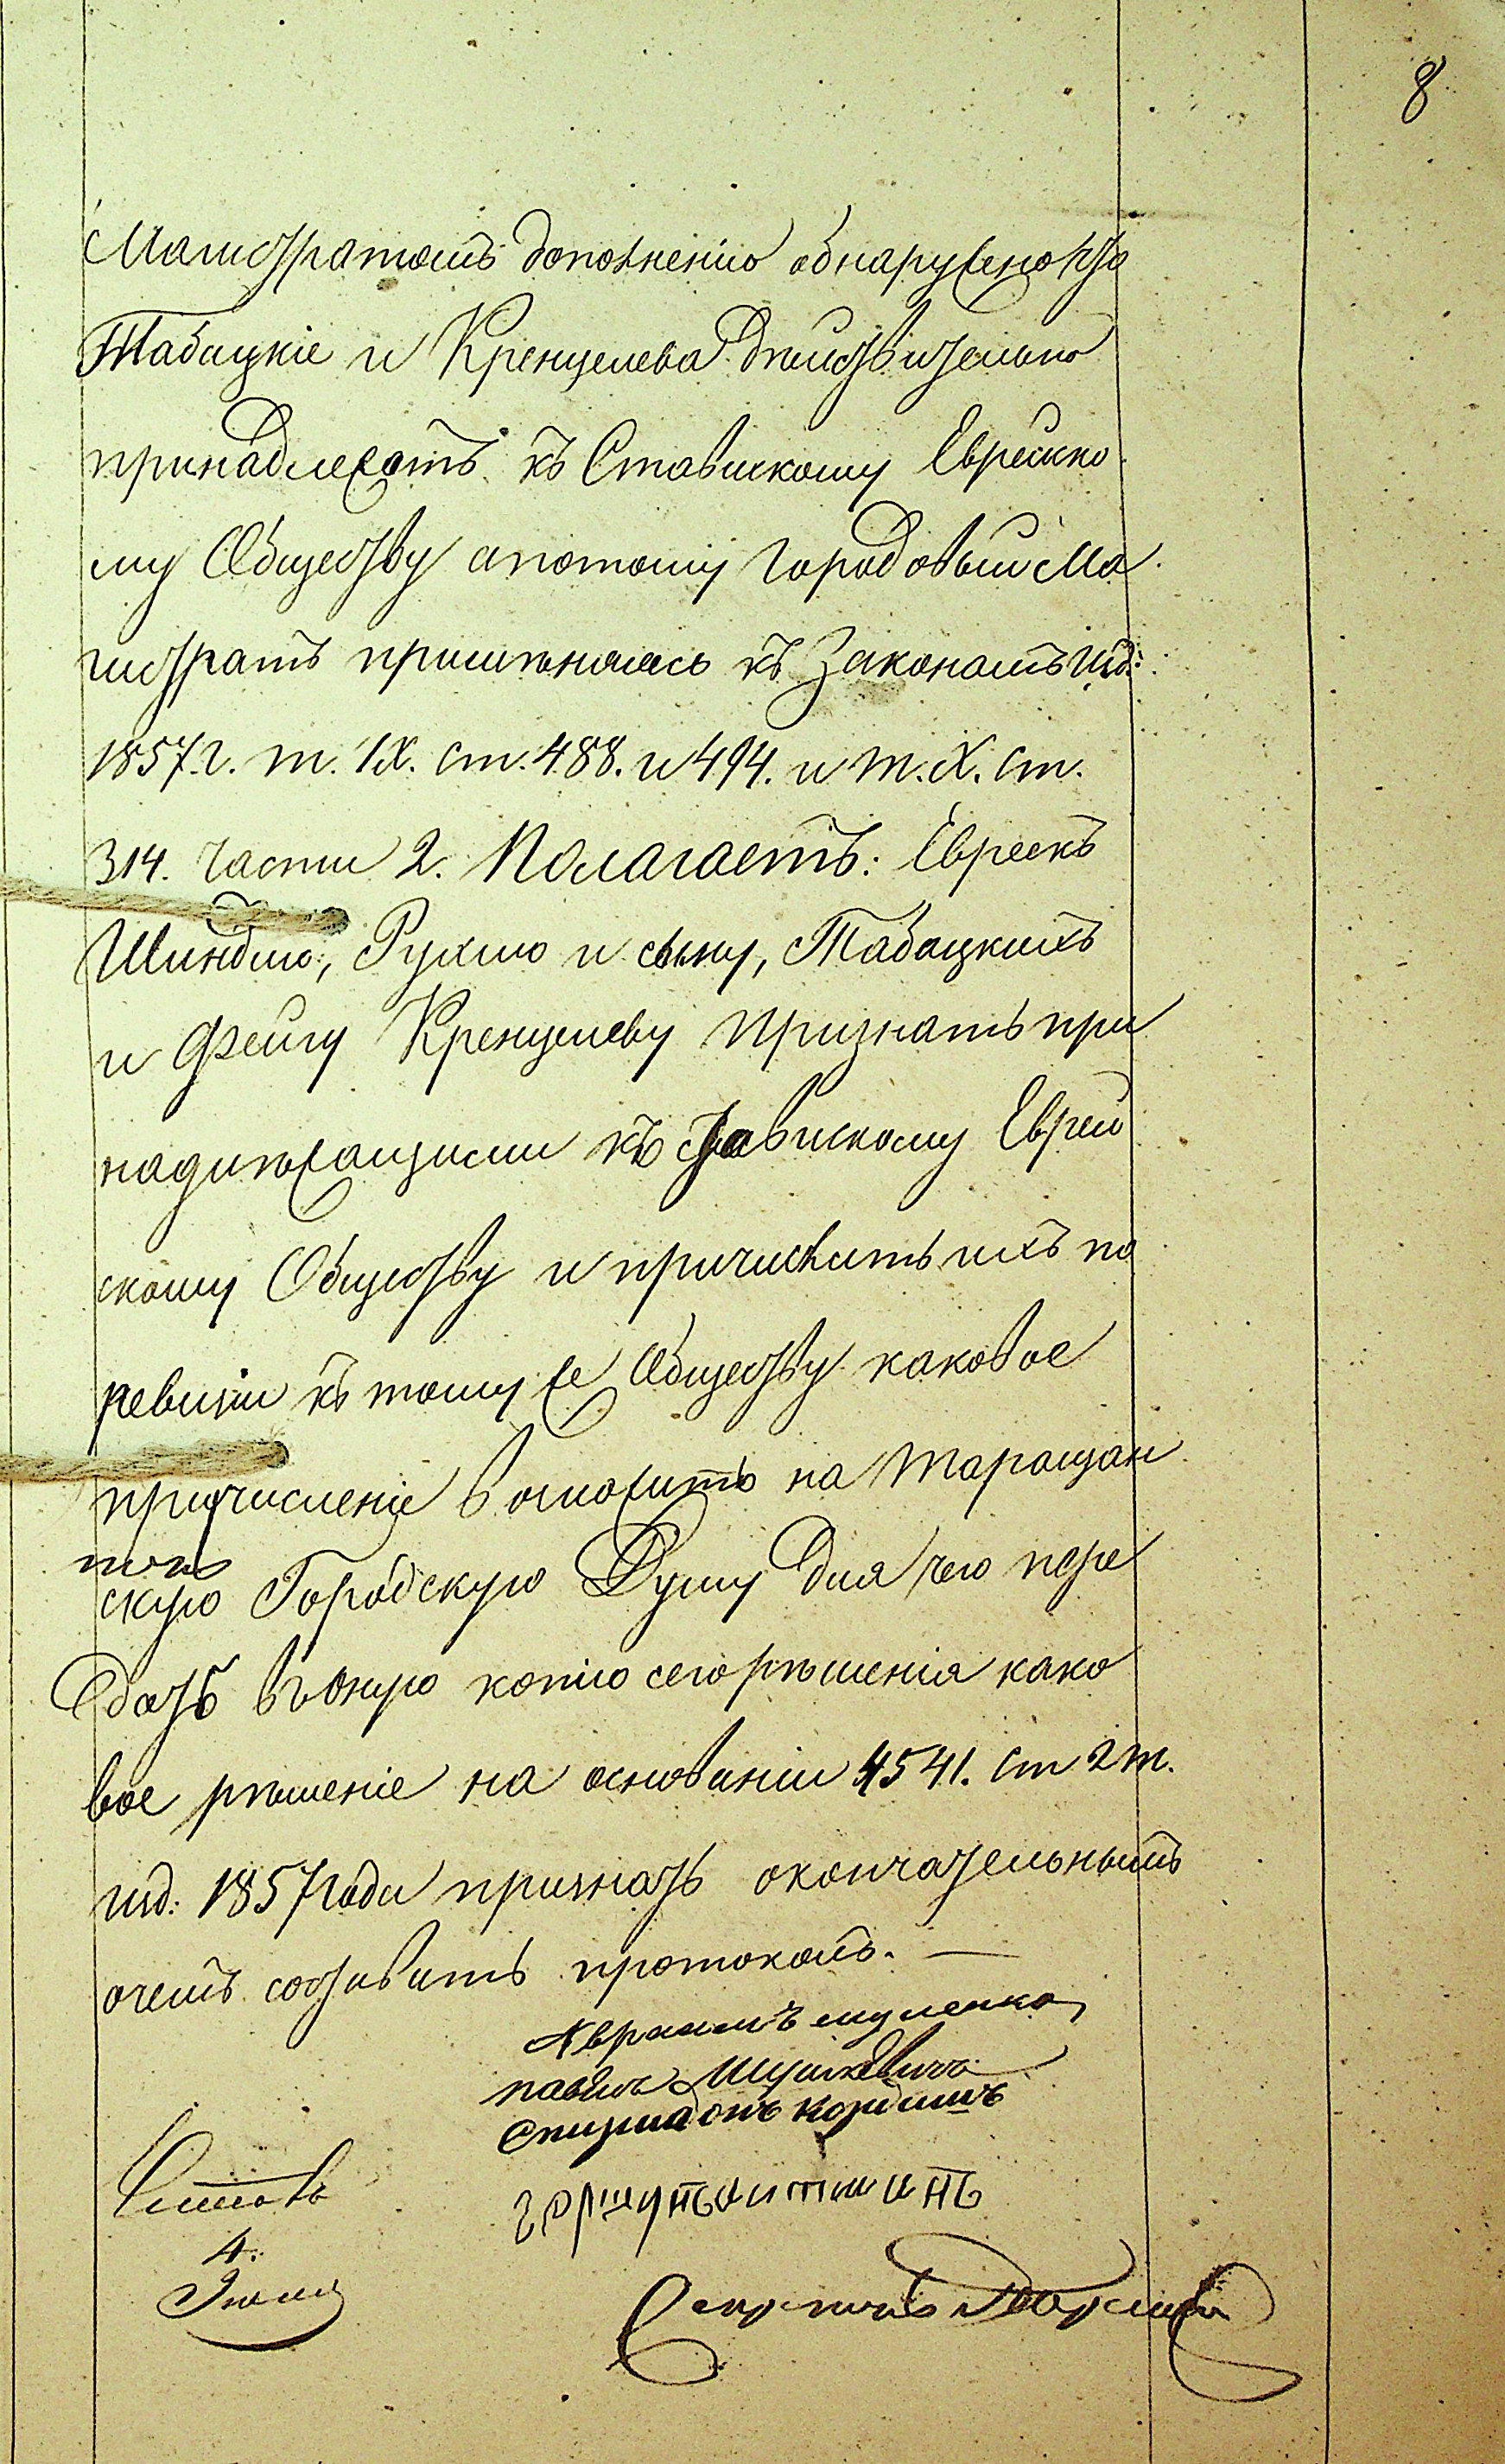 8
Магистратомъ дополнению обнаружено что
Табацкіе и Кренцелева дѣйствительно
принадлежатъ къ Ставискому Еврейско
му Обществу а потому Городовый Ма
гистратъ примѣняясь къ Законамъ изд:
1857. г. т. IX. ст. 488. и 494. и т. X. ст.
314. части 2. Полагаетъ: Евреекъ
Шиндлю, Рухлю и сыну, Табацкихъ
и Фейгу Кренцелеву признать при
надлѣжащими къ Ставискому Еврей
скому Обществу и причислить ихъ по
ревизіи къ тому же Обществу каковое
причисленіе возложить на Таращан
скую Городскую Думу для чего пере
дать въ оную копію сего рѣшенія како
вое рѣшеніе на основаніи 4541. ст 2 т.
изд: 1857 года признать окончательнымъ
о чемъ составить протоколъ. —
Авраамъ
Спиридонъ
4.
Секретарь